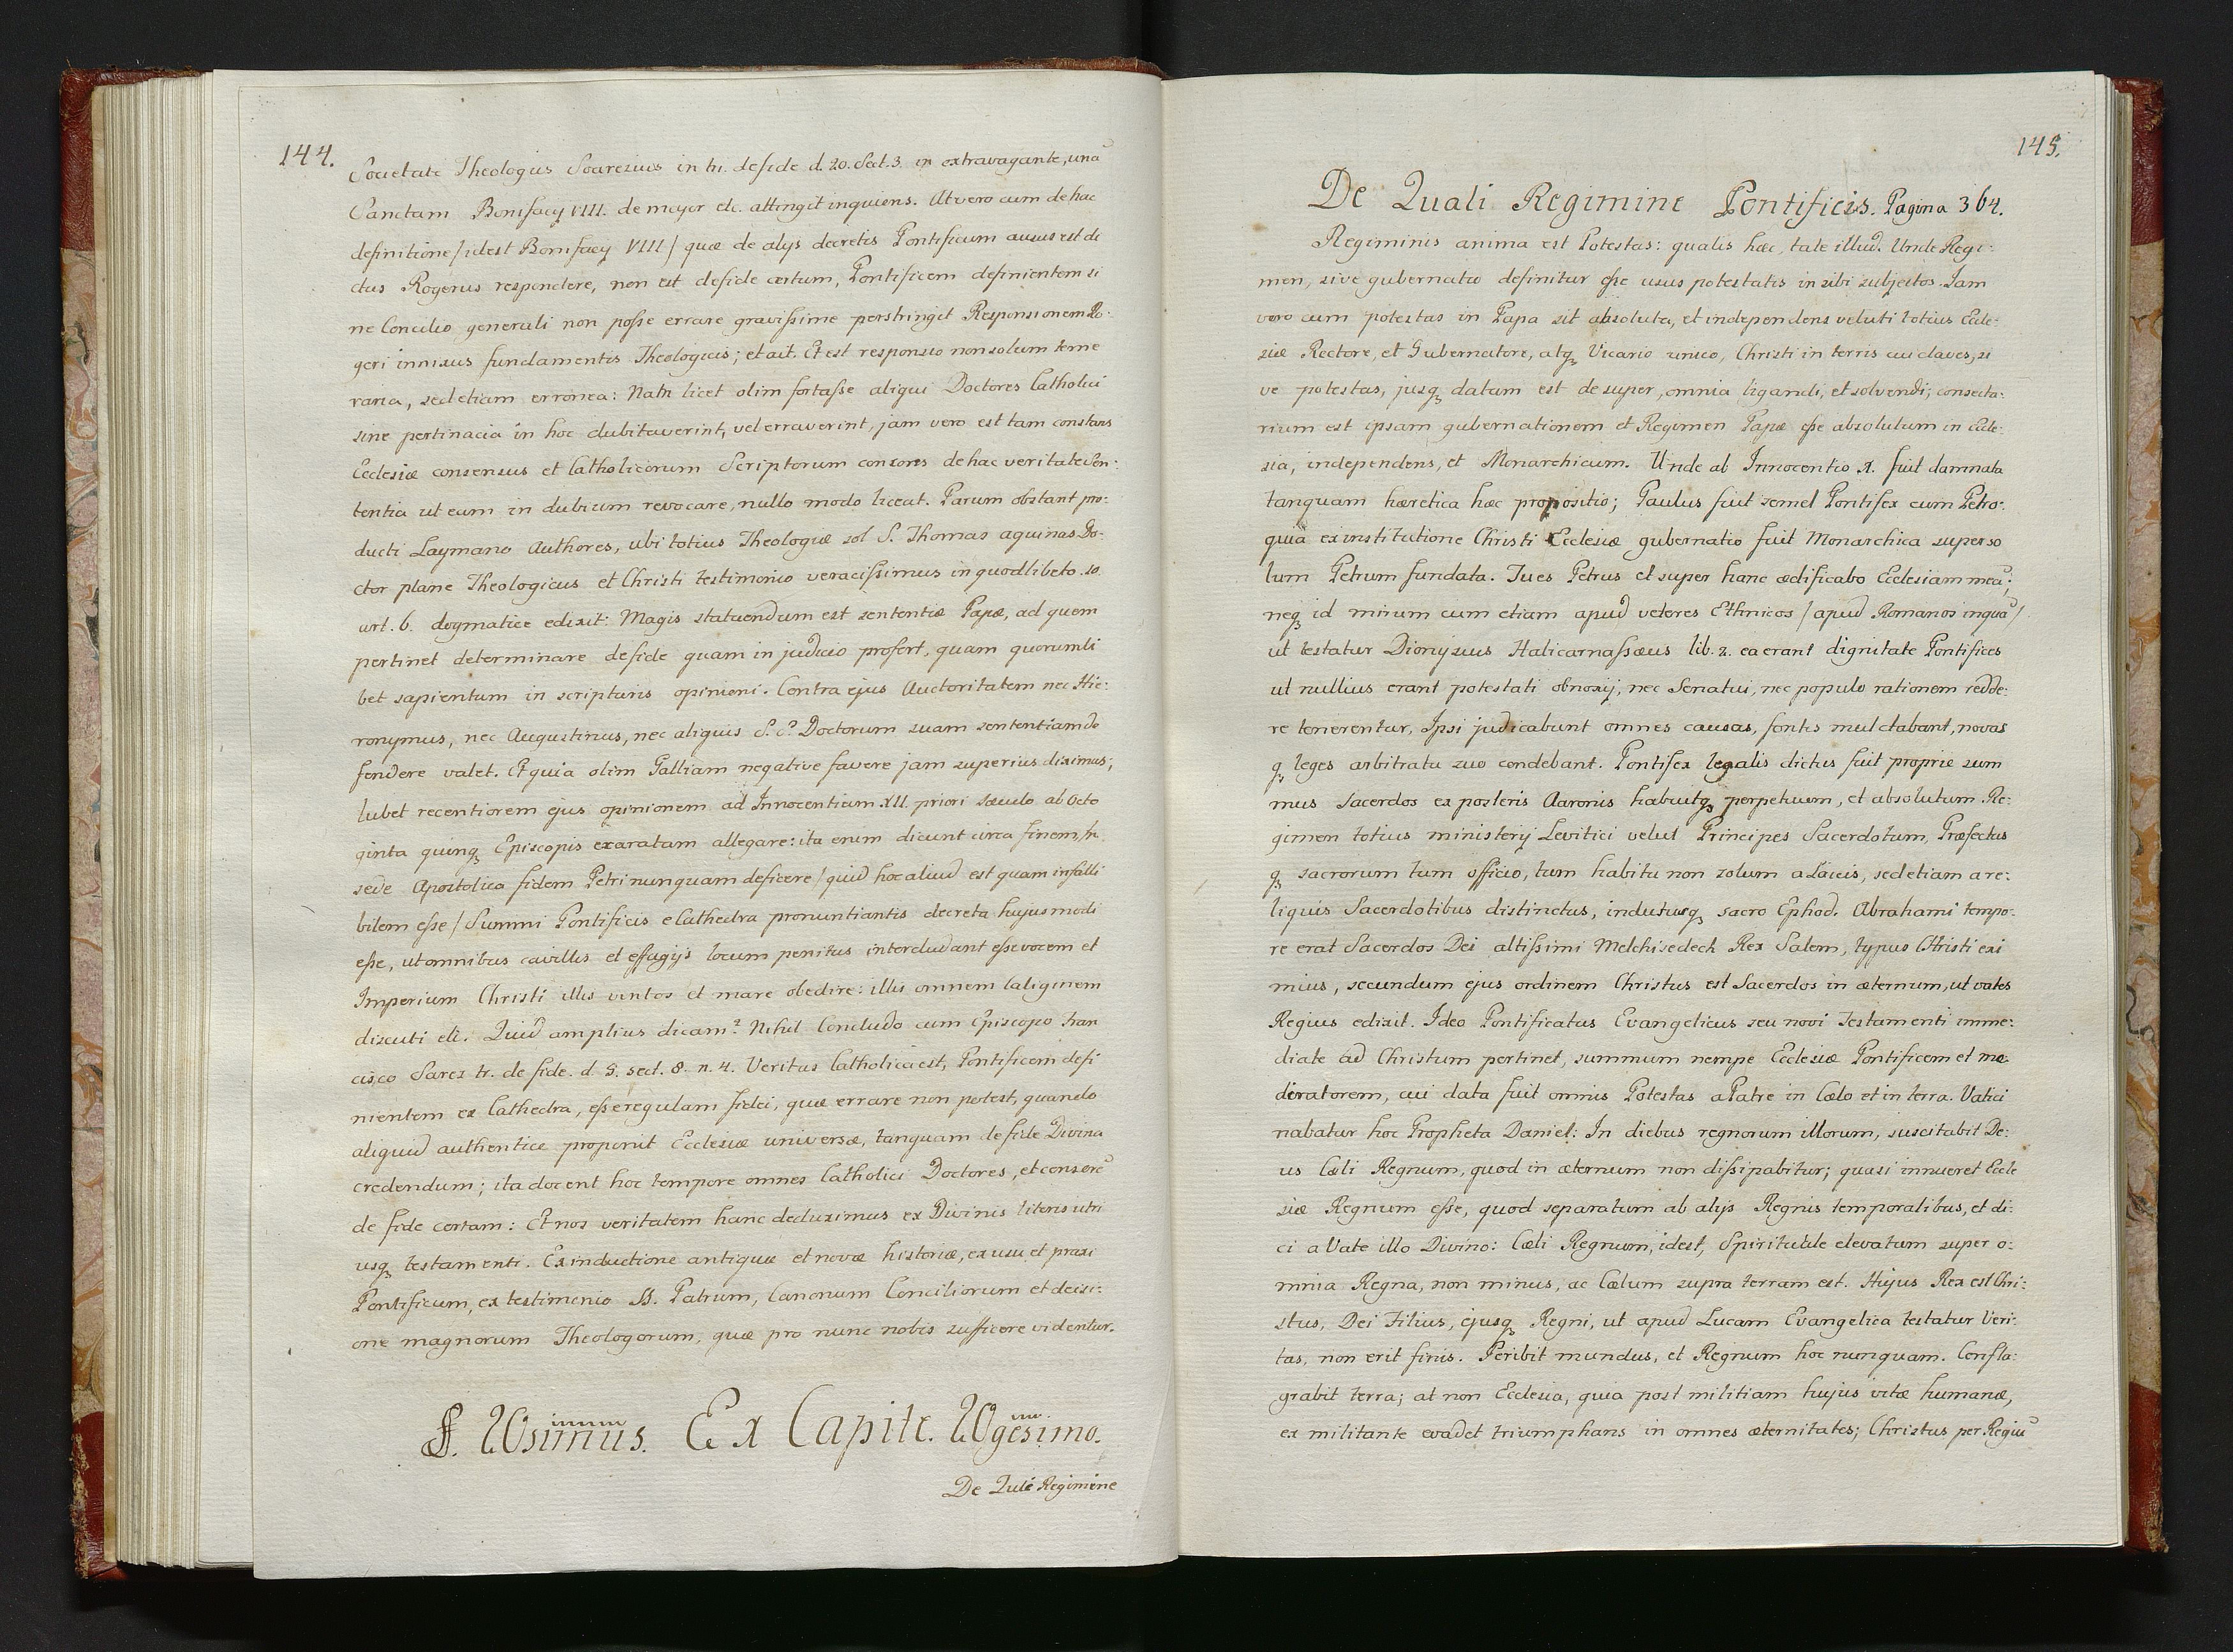 144.
Societate Theologus Soarezius in tr. de fide d. 20. Sect. 3. in extravagante, unã
Sanctam Bonifacij VIII. de mejor etc. attingit inquiens. At vero cum de hac
definitione / idest Bonifacij VIII / quæ de alijs decretis Pontificum ausus est di
ctus Rogerus respondere, non est de fide certum, Pontificem definientem si
ne Concilio generali non posse errare gravissime perstringit Responsionem Ro:
geri innixus fundamentis Theologicis; et ait. Et est responsio non solum teme
raria, sed etiam erronea: Nam licet olim fortasse aliqui Doctores Catholici
sine pertinacia in hoc dubitaverint, vel erraverint, jam vero est tam constans
Ecclesiæ consensus et Catholicorum Scriptorum consors de hac veritate Sen:
tentia ut eum in dubium revocare, nullo modo liceat. Parum obstant pro:
ducti Laymano Authores, ubi totius Theologiæ sol S. Thomas aquinas Do:
ctor plane Theologicus et Christi testimonio veracissimus in quodlibeto. 10.
art. 6. dogmatice edixit: Magis statuendum est sententiæ Papæ, ad quem
pertinet determinare de fide quam in judicio profert, quam quorumli
bet sapientum in scripturis opinioni. Contra ejus Auctoritatem nec Hie:
ronymus, nec Augustinus, nec aliquis S.S. Doctorum suam sententiam de
fendere valet. Et quia olim Galliam negative favere jam superius diximus;
lubet recentiorem ejus opinionem ad Innocentium XII. priori sæculo ab octo
ginta quinqꝫ Episcopis exaratam allegare: ita enim dicunt circa finem, In
sede Apostolica fidem Petri nunquam deficere / quid hoc aliud est quam infalli
bilem esse / Summi Pontificis e Cathedra pronuntiantis decreta hujusmodi
esse, ut omnibus cavillis et effugijs locum penitus intercludant esse vocem et
Imperium Christi illis ventos et mare obedire: illis omnem Caliginem
discuti etc. Quid amplius dicam? Nihil Concludo cum Episcopo Fran
cisco Sarez tr. de fide. d. 5. sect. 8. n. 4. Veritas Catholica est, Pontificem defi
nientem ex Cathedra, esse regulam fidei, quæ errare non potest, quando
aliquid authentice proponit Ecclesiæ universæ, tanquam de fide Divina
credendum; ita docent hoc tempore omnes Catholici Doctores, et censerẽ
de fide certam: Et nos veritatem hanc deduximus ex Divinis literis utri
usqꝫ testamenti. Ex inductione antiquæ et novæ historiæ, ex usu et praxi
Pontificum, ex testimonio SS. Patrum, Canonum Conciliorum et decisi:
one magnorum Theologorum, quæ pro nunc nobis sufficere videntur.
§. VIsimus. Ex Capite. VIgesimo.
De Quali Regimine
145.
De Quali Regimine Pontificis. Pagina 364.
Regiminis anima est Potestas: qualis hæc, tale illud. Unde Regi:
men, sive gubernatio definitur esse usus potestatis in sibi subjectos. Iam
vero cum potestas in Papa sit absoluta, et independens veluti totius Eccle:
siæ Rectore, et Gubernatore, atqꝫ Vicario unico, Christi in terris cui claves, si
ve potestas, jusqꝫ datum est desuper, omnia ligandi, et solvendi; consecta:
rium est ipsam gubernationem et Regimen Papæ esse absolutum in Eccle:
sia, independens, et Monarchicum. Unde ab Innocentio X. fuit damnata
tanquam hæretica hæc propositio; Paulus fuit semel Pontifex cum Petro:
quia ex institutione Christi Ecclesiæ gubernatio fuit Monarchica super so
lum Petrum fundata. Tu es Petrus et super hanc ædificabo Ecclesiam meã;
neqꝫ id mirum cum etiam apud veteres Ethnicos / apud Romanos inquã /
ut testatur Dionysius Halicarnassæus lib. 2. ea erant dignitate Pontifices
ut nullius erant potestati obnoxij, nec Senatui, nec populo rationem redde:
re tenerentur, Ipsi judicabunt omnes causas, fontis mulctabant, novas
qꝫ leges arbitratu suo condebant. Pontifex legalis dictus fuit proprie sum
mus sacerdos ex posteris Aaronis habuitqꝫ perpetuum, et absolutum Re:
gimen totius ministerij Levitici velut Principes Sacerdotum, Præfectus
qꝫ sacrorum tum officio, tum habitu non solum a Laicis, sed etiam a re:
liquis Sacerdotibus distinctus, indutusqꝫ sacro Ephod. Abrahami tempo:
re erat Sacerdos Dei altissimi Melchisedech Rex Salem, typus Christi exi
mius, secundum ejus ordinem Christus est Sacerdos in æternum, ut vates
Regius edixit. Ideo Pontificatus Evangelicus seu novi Testamenti imme:
diate ad Christum pertinet, summum nempe Ecclesiæ Pontificem et mo:
diratorem, cui data fuit omnis Potestas a Patre in Cælo et in terra. Vatici
nabatur hoc Propheta Daniel: In diebus regnorum illorum, suscitabit De:
us Cæli Regnum, quod in æternum non dissipabitur; quasi innueret Eccle
siæ Regnum esse, quod separatum ab alijs Regnis temporalibus, et di:
ci a Vate illo Divino: Cæli Regnum, idest, Spirituale elevatum super o:
mnia Regna, non minus, ac Cælum supra terram est. Hujus Rex est Chri:
stus, Dei Filius, ejusqꝫ Regni, ut apud Lucam Evangelica testatur Veri:
tas, non erit finis. Peribit mundus, et Regnum hoc nunquam. Confla:
grabit terra; at non Ecclesia, quia post militiam hujus vitæ humanæ,
ex militante evadet triumphans in omnes æternitates; Christus per Regiũ